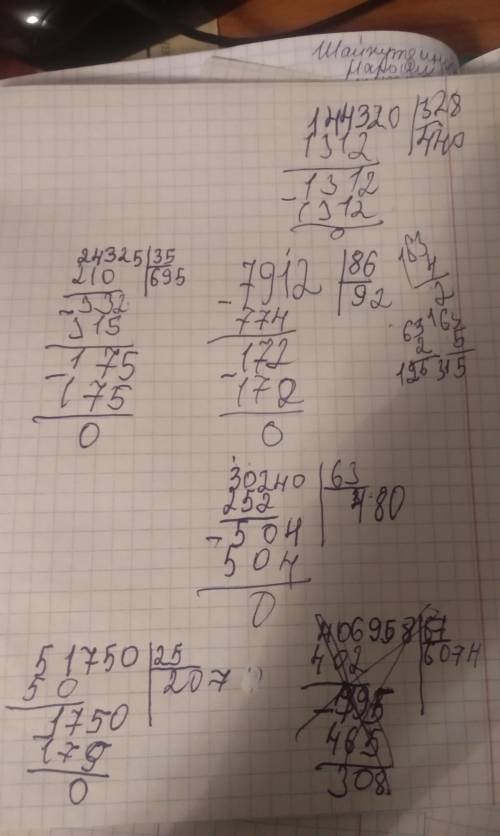 144320 328
1312 440
-1312
1312
0
24325 35
210 695
-332
315
-175
175
0
-7912 86
774 92
-172
172
0
163
4
2
63
2
126
5
315
30240 63
252 480
-504
504
0
51750 25
50 207
1750
175
0
406958 67
402 6074
-495
465
308